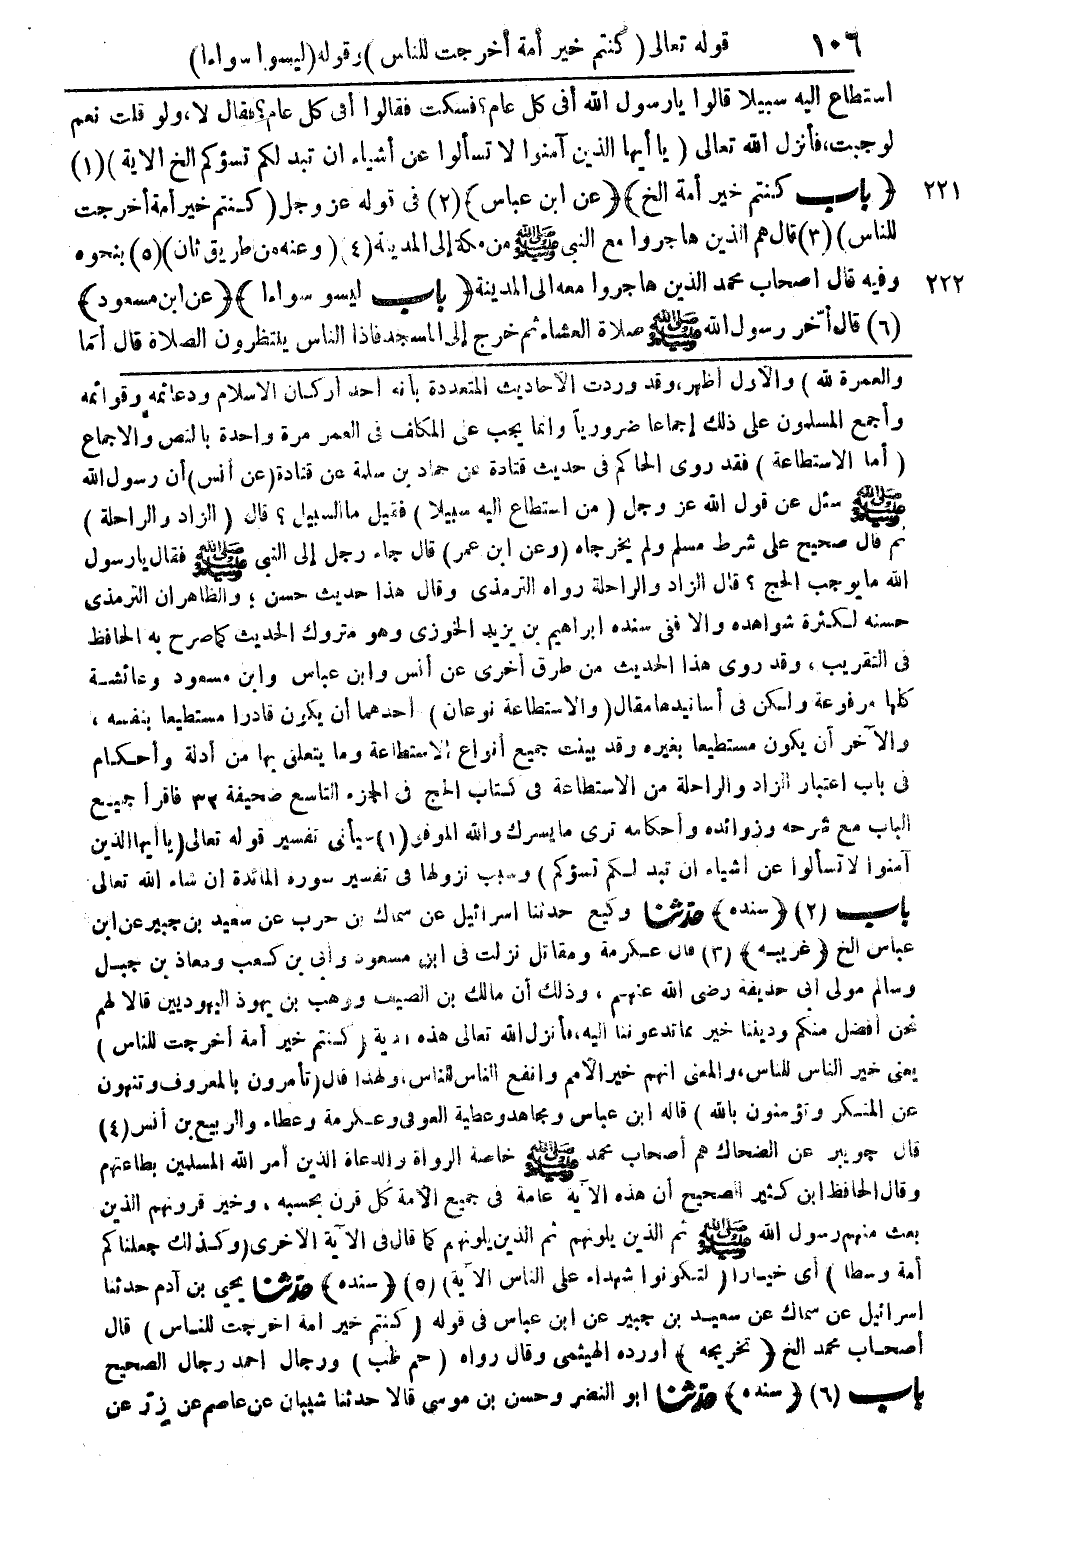 ١٠٦ قوله تعالى (كنتم خير أمة أخرجت للناس) وقوله (ليسوا سواءا)
استطاع اليه سبيلا قالوا يارسول الله أفى كل عام؟ فسكت فقالوا أفى كل عام؟ فقال لا، ولو قلت نعم
لوجبت، فأنزل الله تعالى (يا أيها الذين آمنوا لا تسألوا عن أشياء ان تبد لكم تسؤكم الخ الاية) (١)
٢٢١ ﴿باب كنتم خير أمة الخ﴾ ﴿عن ابن عباس﴾ (٢) فى قوله عز وجل (كنتم خير أمة أخرجت
للناس) (٣) قال هم الذين هاجروا مع النبي ﷺ من مكة إلى المدينة (٤) (وعنه من طريق ثان) (٥) بنحوه
٢٢٢ وفيه قال اصحاب محمد الذين هاجروا معه الى المدينة ﴿باب ليسو سواءا﴾ ﴿عن ابن مسعود﴾
(٦) قال أخّر رسول الله ﷺ صلاة العشاء ثم خرج إلى المسجد فاذا الناس ينتظرون الصلاة قال أما
والعمرة لله) والأول أظهر، وقد وردت الأحاديث المتعددة بأنه احد أركان الاسلام ودعائمه وقوائمه
وأجمع المسلمون على ذلك إجماعا ضرورياً وانما يجب على المكلف فى العمر مرة واحدة بالنص والاجماع
(أما الاستطاعة) فقد روى الحاكم فى حديث قتادة عن حماد بن سلمة عن قتادة (عن أنس) أن رسول الله
ﷺ سئل عن قول الله عز وجل (من استطاع اليه سبيلا) فقيل ما السبيل؟ قال (الزاد والراحلة)
ثم قال صحيح على شرط مسلم ولم يخرجاه (وعن ابن عمر) قال جاء رجل إلى النبي ﷺ فقال يارسول
الله ما يوجب الحج؟ قال الزاد والراحلة رواه الترمذى وقال هذا حديث حسن؛ والظاهر ان الترمذى
حسنه لكثرة شواهده والا ففى سنده ابراهيم بن يزيد الخوزى وهو متروك الحديث كما صرح به الحافظ
فى التقريب، وقد روى هذا الحديث من طرق أخرى عن أنس وابن عباس وابن مسعود وعائشة
كلها مرفوعة ولكن فى أسانيدها مقال (والاستطاعة نوعان) أحدهما أن يكون قادرا مستطيعا بنفسه،
والآخر أن يكون مستطيعا بغيره وقد بينت جميع أنواع الاستطاعة وما يتعلق بها من أدلة وأحكام
فى باب اعتبار الزاد والراحلة من الاستطاعة فى كتاب الحج فى الجزء التاسع صحيفة ٣٢ فاقرأ جميع
الباب مع شرحه وزوائده وأحكامه ترى ما يسرك والله الموفق (١) سيأتى تفسير قوله تعالى (يا أيها الذين
آمنوا لا تسألوا عن اشياء ان تبد لكم تسؤكم) وسبب نزولها فى تفسير سورة المائدة ان شاء الله تعالى
باب (٢) ﴿سنده﴾ حدثنا وكيع حدثنا اسرائيل عن سماك بن حرب عن سعيد بن جبير عن ابن
عباس الخ ﴿غريبه﴾ (٣) قال عكرمة ومقاتل نزلت فى ابن مسعود وأبى بن كعب ومعاذ بن جبل
وسالم مولى ابى حذيفة رضى الله عنهم، وذلك أن مالك بن الصيف ووهب بن يهوذ اليهوديين قالا لهم
نحن أفضل منكم وديننا خير مما تدعوننا اليه، فأنزل الله تعالى هذه الاية (كنتم خير أمة أخرجت للناس)
يعنى خير الناس للناس، والمعنى انهم خير الأمم وانفع الناس للناس، ولهذا قال (تأمرون بالمعروف وتنهون
عن المنكر وتؤمنون بالله) قاله ابن عباس ومجاهد وعطية العوفى وعكرمة وعطاء والربيع بن أنس (٤)
قال جويبر عن الضحاك هم أصحاب محمد ﷺ خاصة الرواة والدعاة الذين أمر الله المسلمين بطاعتهم
وقال الحافظ ابن كثير الصحيح أن هذه الآية عامة فى جميع الأمة كل قرن بحسبه، وخير قرونهم الذين
بعث منهم رسول الله ﷺ ثم الذين يلونهم ثم الذين يلونهم كما قال فى الآية الاخرى (وكذلك جعلناكم
أمة وسطا) أى خيارا (لتكونوا شهداء على الناس الآية) (٥) ﴿سنده﴾ حدثنا يحيى بن آدم حدثنا
اسرائيل عن سماك عن سعيد بن جبير عن ابن عباس فى قوله (كنتم خير امة اخرجت للناس) قال
أصحاب محمد الخ ﴿تخريجه﴾ اورده الهيثمى وقال رواه (حم طب) ورجال احمد رجال الصحيح
باب (٦) ﴿سنده﴾ حدثنا ابو النضر وحسن بن موسى قالا حدثنا شيبان عن عاصم عن زرّ عن